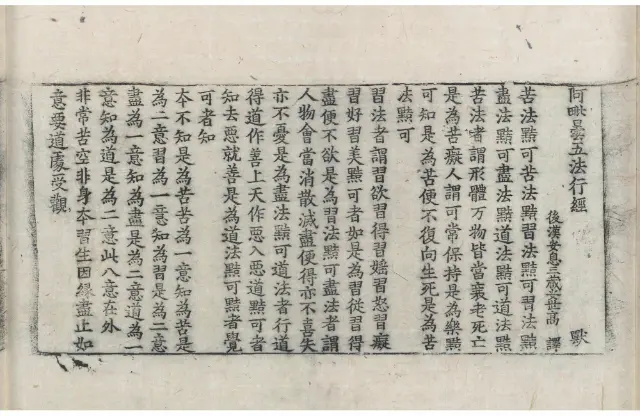 阿毗曇五法行經 獸
後漢安息三藏安世高 譯
苦法黠可苦法黠習法黠可習法黠
盡法黠可盡法黠道法黠可道法黠
苦法者謂形體万物皆當衰老死亡
是為苦癡人謂可常保持是為樂黠
可知是為苦便不復向生死是為苦
法黠可
習法者謂習欲習得習婬習怒習癡
習好習美黠可者如是為習從習得
盡便不欲是為習法黠可盡法者謂
人物會當消散滅盡便得亦不喜失
亦不憂是為盡法黠可道法者行道
得道作善上天作惡入惡道黠可者
知去惡就善是為道法黠可黠者覺
可者知
本不知是為苦苦為一意知為苦是
為二意習為一意知為習是為二意
盡為一意知為盡是為二意道為一
意知為道是為二意此八意在外
非常苦空非身本習生因緣盡止如
意要道處受觀